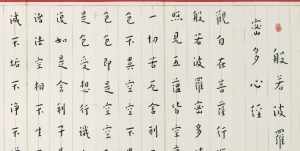 般若波羅
蜜多心經
觀自在菩薩行
般若波羅蜜多
照見五蘊皆空
一切苦厄舍利
色不異空空不
色色即是空空
是色受想行識
復如是舍利子
諸法空相不生
滅不垢不淨不